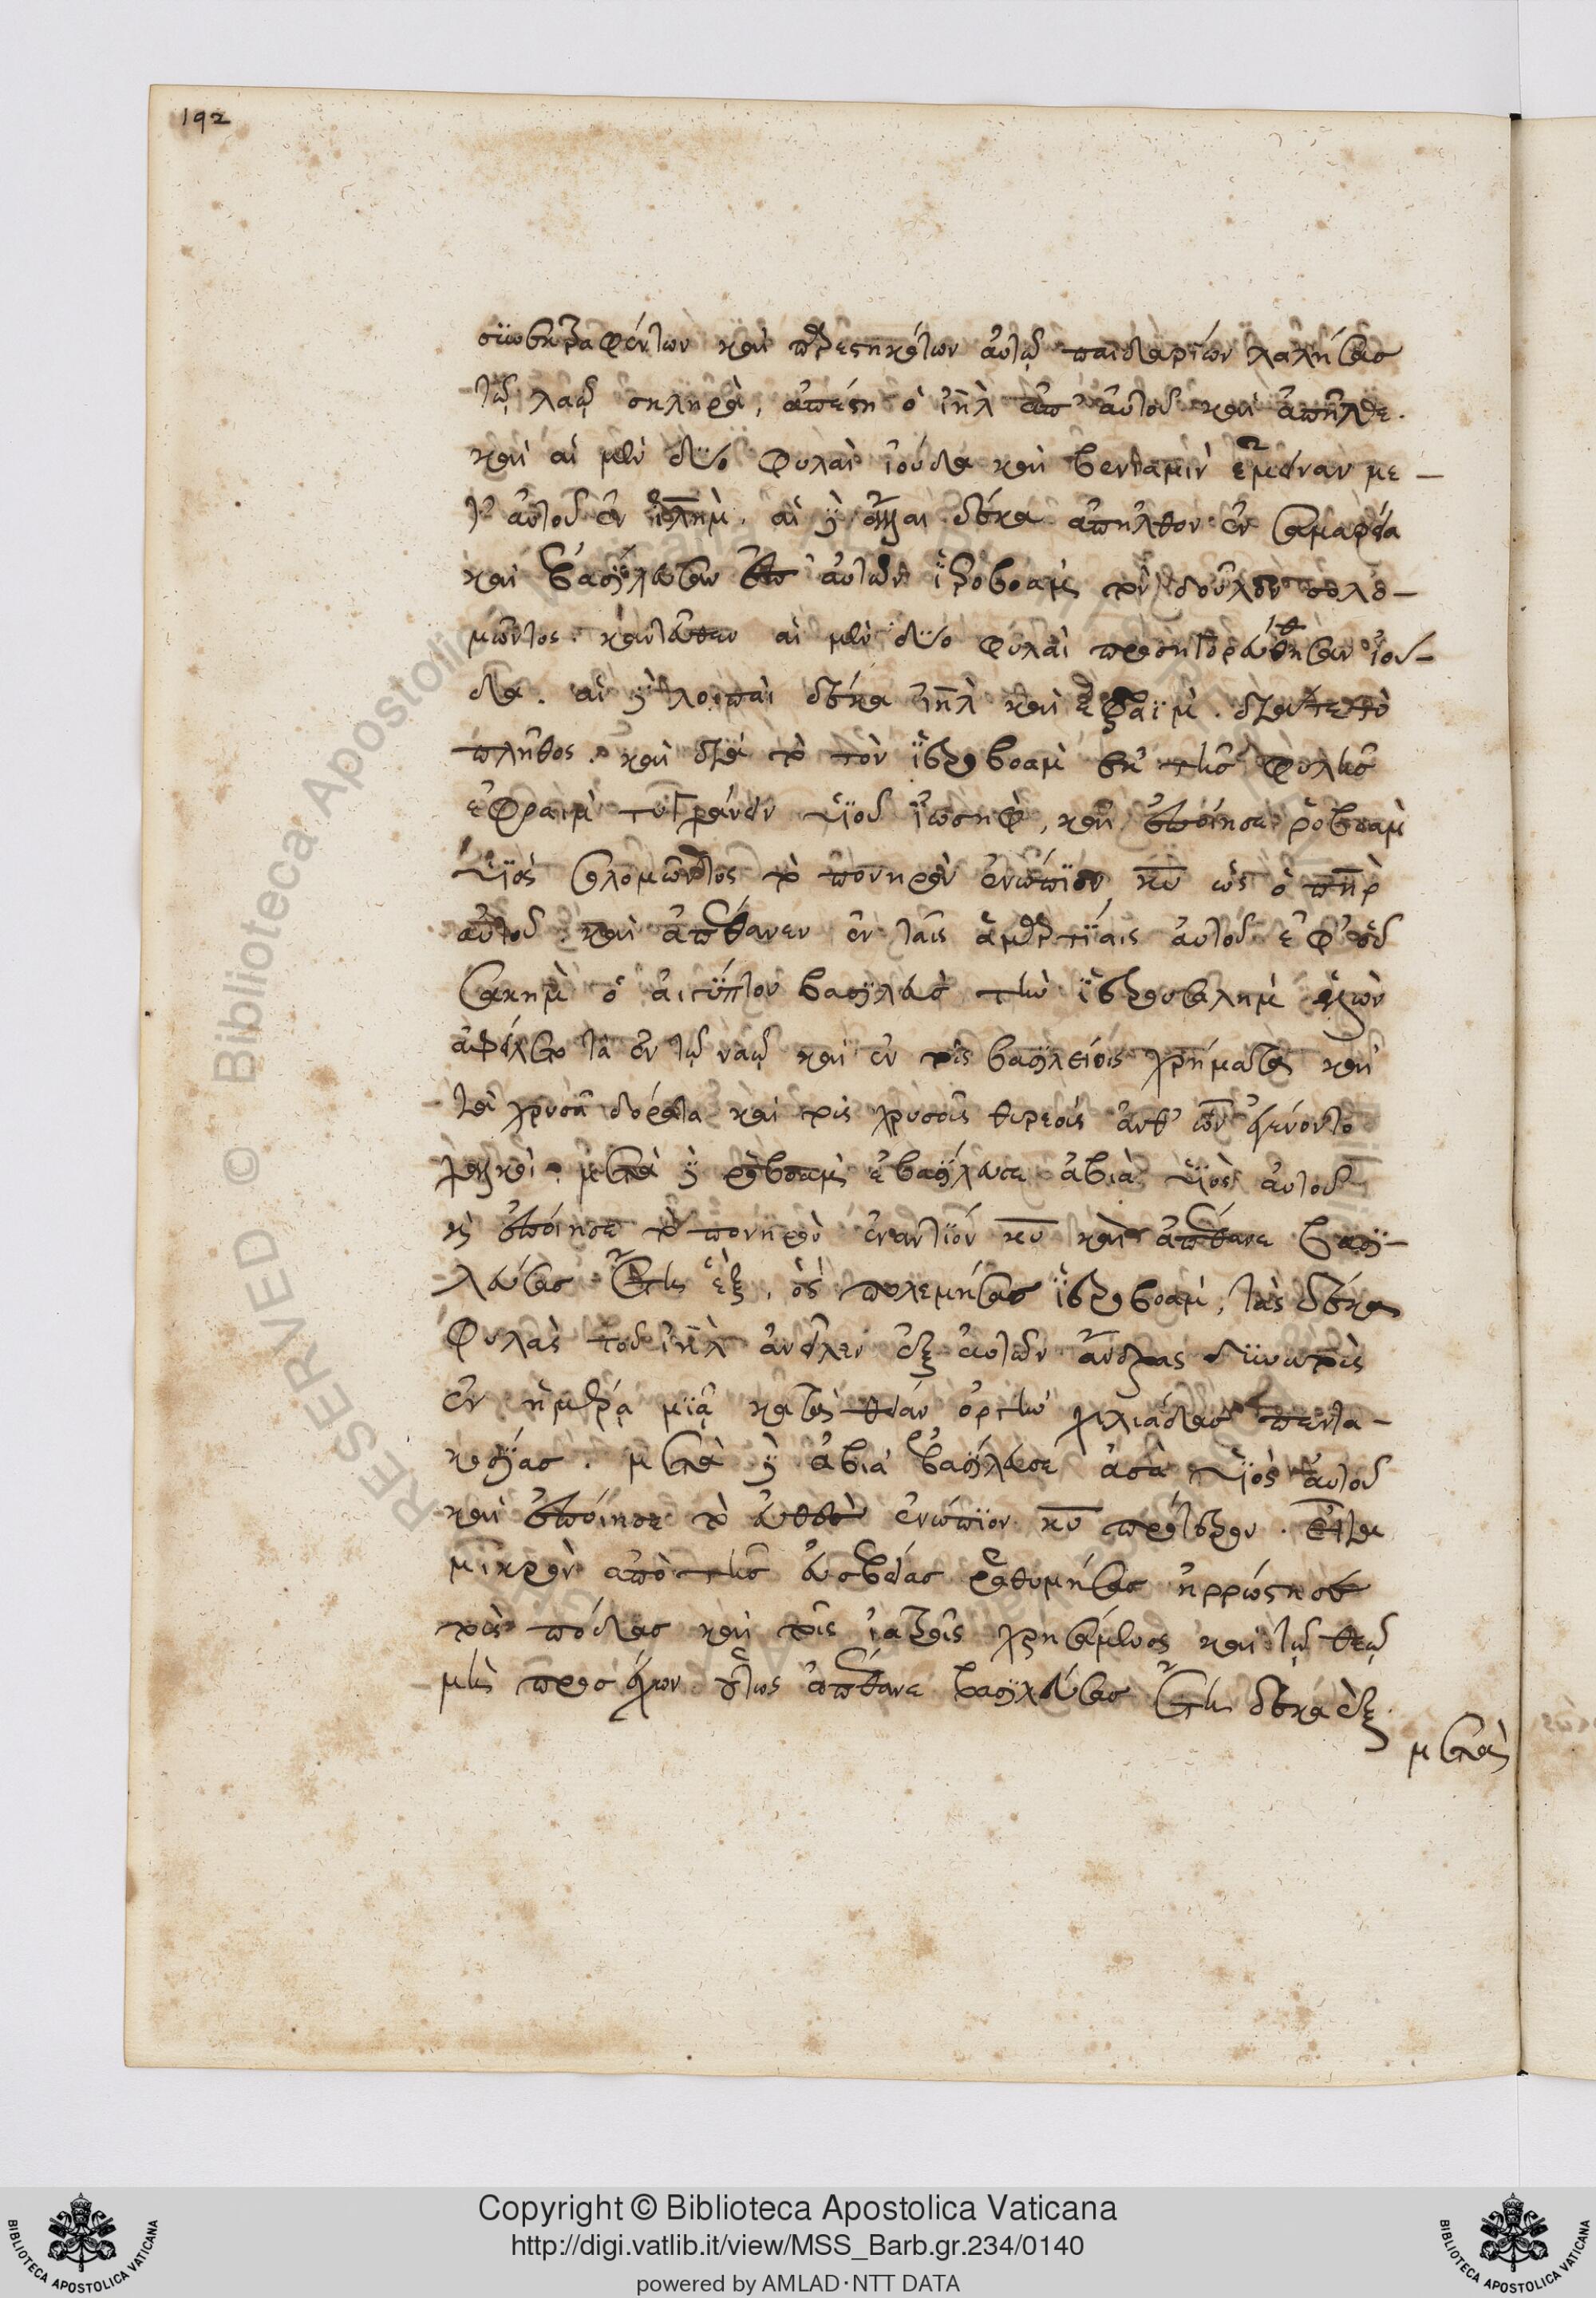 192
συνεκτραφέντων καὶ παρεστηκότων αὐτῷ παιδαρίων λαλήσας
τῷ λαῷ σκληρὰ, ἀπέστη ὁ ἰηλ ἀπ' αὐτοῦ καὶ ἀπῆλθε.
καὶ αἱ μὲν δύο φυλαὶ ἰούδα καὶ βενιαμὶν ἔμειναν με-
τ' αὐτοῦ ἐν ἱλημ. αἱ δὲ ἄλλαι δέκα ἀπῆλθον ἐν σαμαρεία
καὶ ἐβασίλευσεν ἐπ' αὐτῶν ἱεροβοὰμ τὸν δοῦλον σολο-
μῶντος. κἀντεῦθεν αἱ μὲν δύο φυλαὶ προσηγορεύθησαν ἰού-
δα. αἱ δὲ λοιπαὶ δέκα ἰηλ καὶ ἐφραῒμ. διά τε τὸ
πλῆθος. καὶ διὰ τὸ τὸν ἱεροβοὰμ ἐκ τῆς φυλῆς
ἐφραὶμ τυγχάνειν υἱοῦ ἰωσὴφ, καὶ ἐποίησε ῥοβοαμ
υἱὸς σολομῶντος τὸ πονηρὸν ἐνώπιον κυ ὡς ὁ πηρ
αὐτοῦ. καὶ ἀπέθανεν ἐν ταῖς ἁμαρτίαις αὐτοῦ ἐφ' οὗ
σακημ ὁ αἰγύπτου βασιλεὺς τὴν ἱερουσαλημ ἑλὼν
ἀφείλετο τὰ ἐν τῷ ναῷ καὶ ἐν τοῖς βασιλείοις χρήματα καὶ
τὰ χρυσᾶ δόρατα καὶ τοὺς χρυσοῦς θυρεοὺς ἀνθ' ὧν ἐγένοντο
χαλκοῖ. μετὰ δὲ ῥοβοὰμ ἐβασίλευσε ἀβιὰ υἱὸς αὐτοῦ
καὶ ἐποίησε τὸ πονηρὸν ἐναντίον κυ καὶ ἀπέθανε βασι-
λεύσας ἔτη ἕξ, ὃς πολεμήσας ἱεροβοὰμ, τὰς δέκα
φυλὰς τοῦ ἰηλ ἀνεῖλεν ἐξ αὐτῶν ἄνδρας δυνατοὺς
ἐν ἡμέρᾳ μιᾷ κατὰ θείαν ὀργὴν χιλιάδας πεντα-
κοσίας. μετὰ δὲ ἀβιὰ ἐβασίλευσε ἀσὰ υἱὸς αὐτοῦ
καὶ ἐποίησε τὸ εὐθὲς ἐνώπιον κυ πρότερον. εἶτα
μικρὸν ἀπὸ τῆς εὐσεβείας ῥαθυμήσας ἠρρώστησε
τοὺς πόδας καὶ τοῖς ἰατροῖς χρησάμενος καὶ τῷ θεῷ
μὴ προσέχων οὕτως ἀπέθανε βασιλεύσας ἔτη δέκα ἕξ.
μετὰ
Copyright © Biblioteca Apostolica Vaticana
http://digi.vatlib.it/view/MSS_Barb.gr.234/0140
powered by AMLAD·NTT DATA